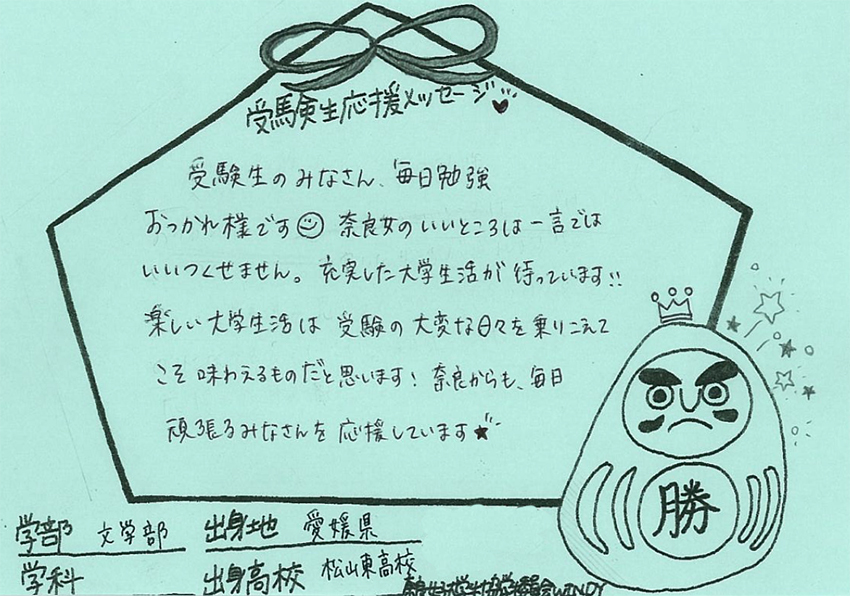 受験生応援メッセージ♥
受験生のみなさん、毎日勉強
おつかれ様です☺ 奈良女のいいところは一言では
いいつくせません。充実した大学生活が待っています!!
楽しい大学生活は 受験の大変な日々を乗りこえて
こそ味わえるものだと思います! 奈良からも、毎日
頑張るみなさんを応援しています★
勝
学部 文学部 出身地 愛媛県
学科 出身高校 松山東高校
WINDY